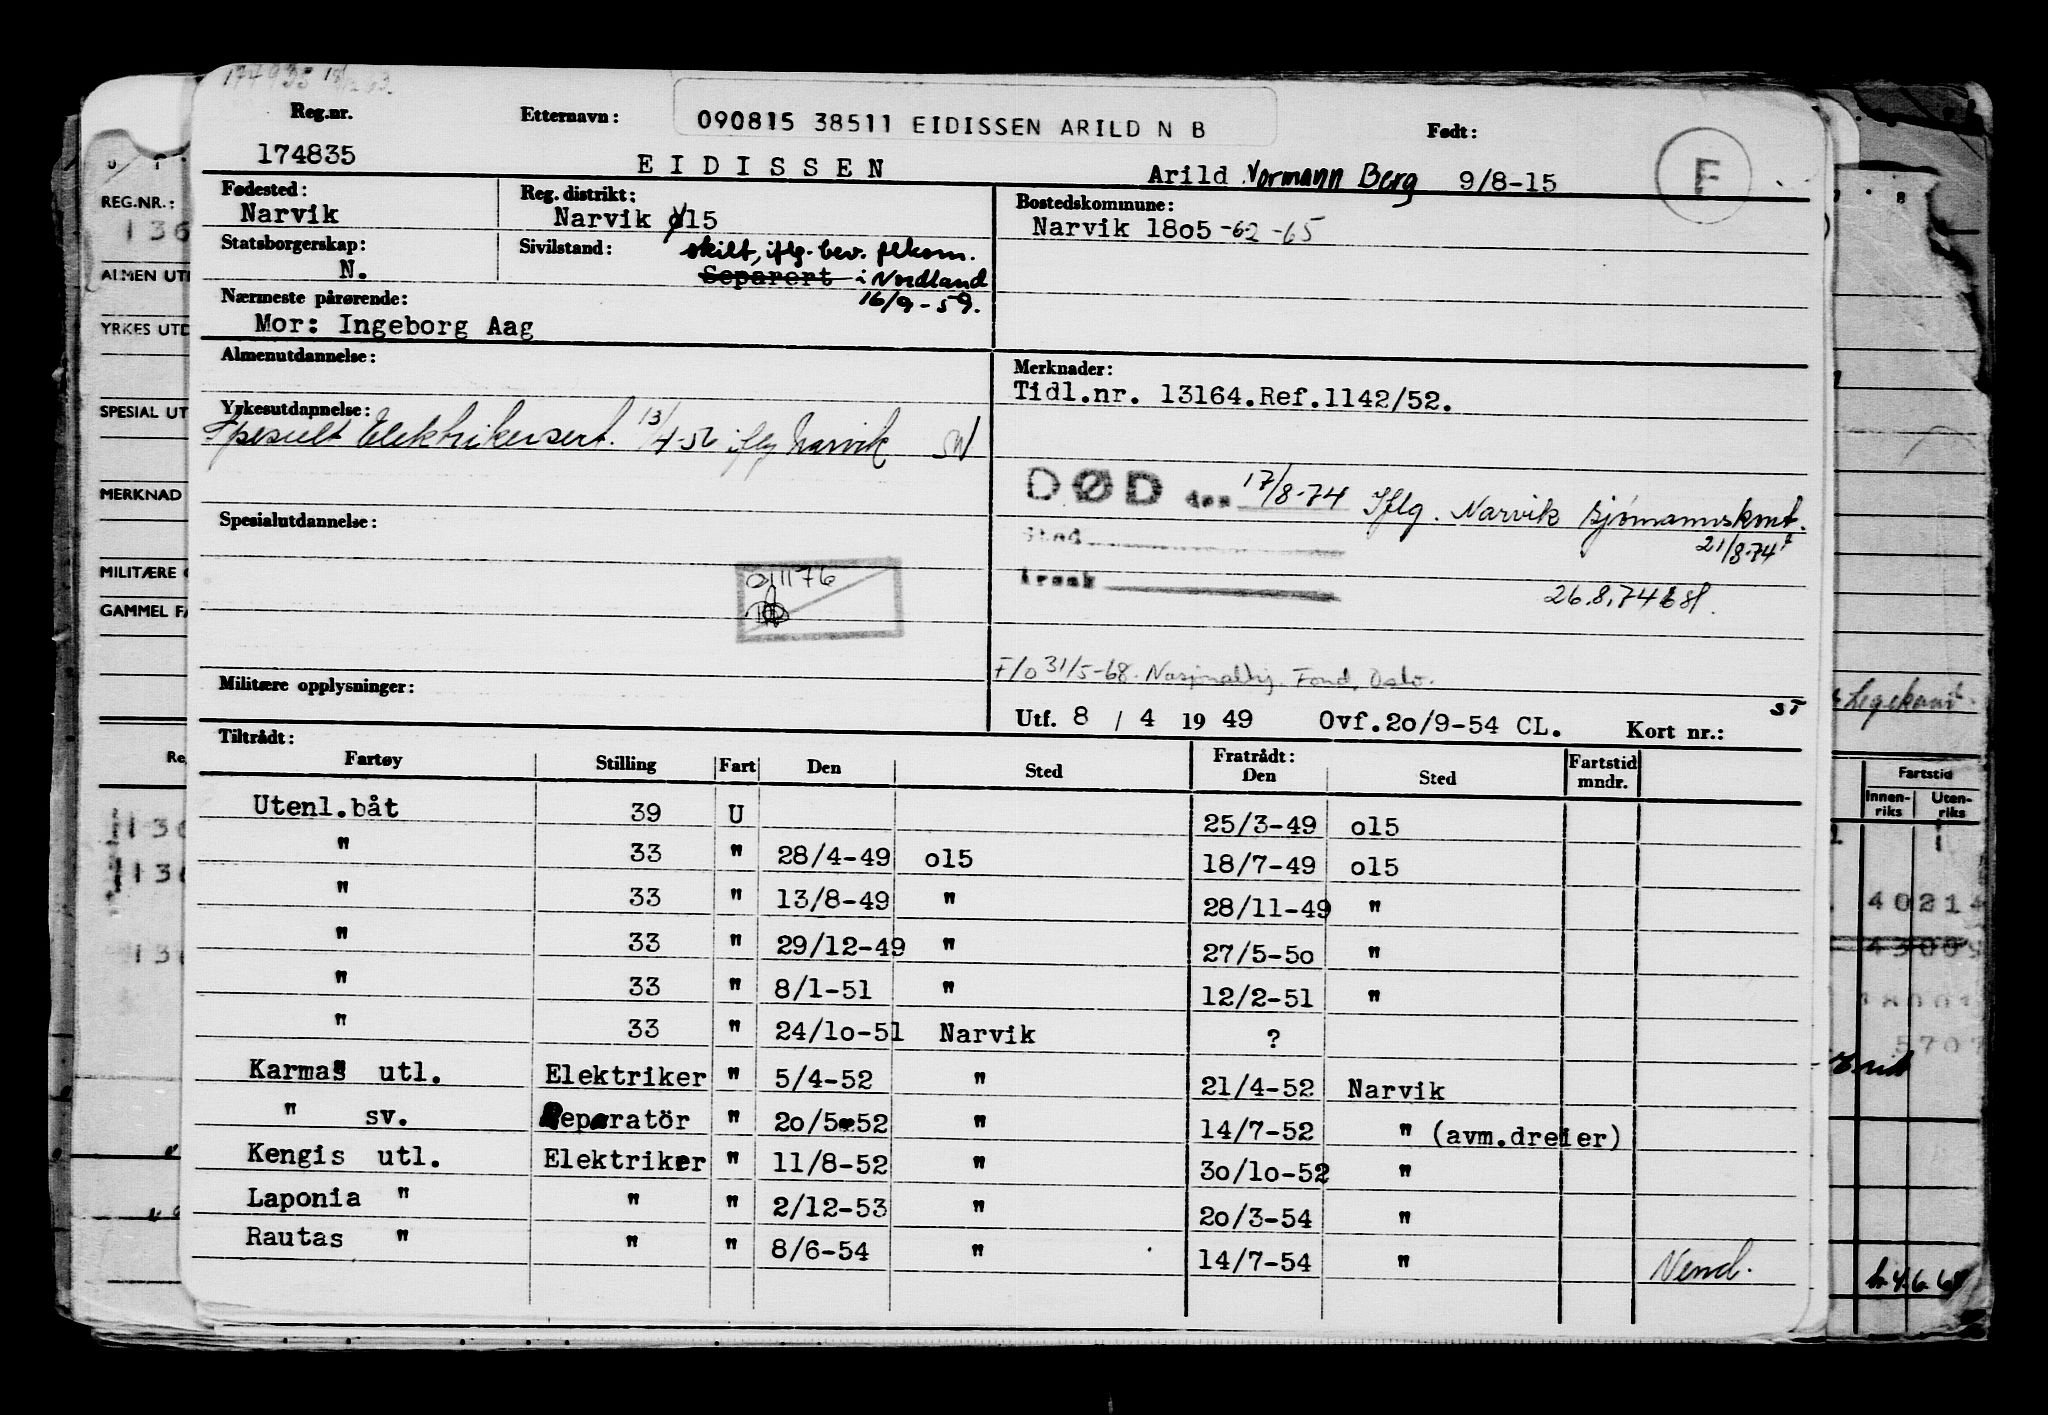 174935 18/12 63.
Reg.nr. Etternavn: 090815 38511 EIDISSEN ARILD N B Født:
174835 EIDISSEN Arild Normann Berg 9/8-15 F
Fødested: Reg. distrikt: Bostedskommune:
Narvik Narvik o15 Narvik 18o5 -62 -65
Statsborgerskap: Sivilstand: skilt, iflg. bev. flkom.
N. Separert i Nordland
Nærmeste pårørende: 16/9-59.
Mor: Ingeborg Aag
Almenutdannelse: Merknader:
Tidl.nr. 13164.Ref.1142/52.
Yrkesutdannelse:
Spesielt Elektrikersert. 13/4-52 iflg Narvik
DØD den 17/8-74 Iflg. Narvik sjømannskont.
21/8-74
Spesialutdannelse: Sted
Årsak
26.8.74
F/o 31/5-68. Fond, Oslo.
Militære opplysninger: ST
Utf. 8 / 4 19 49 Ovf.2o/9-54 CL. Kort nr.:
Tiltrådt: Fratrådt:
Fartøy Stilling Fart Den Sted Den Sted Fartstid mndr.
Utenl.båt 39 U 25/3-49 o15
" 33 " 28/4-49 o15 18/7-49 o15
" 33 " 13/8-49 " 28/11-49 "
" 33 " 29/12-49 " 27/5-5o "
" 33 " 8/1-51 " 12/2-51 "
" 33 " 24/1o-51 Narvik ?
Karmas utl. Elektriker " 5/4-52 " 21/4-52 Narvik
" sv. Reparatör " 2o/5-52 " 14/7-52 " (avm.dreier)
Kengis utl. Elektriker " 11/8-52 " 3o/1o-52 "
Laponia " " " 2/12-53 " 2o/3-54 "
Rautas " " " 8/6-54 " 14/7-54 " Vend.
REG.NR.:
136
ALMEN UT
YRKES UTD
SPESIAL UT
MERKNAD
MILITÆRE
GAMMEL FA
Fartstid
Innen-riks Uten-riks
40214